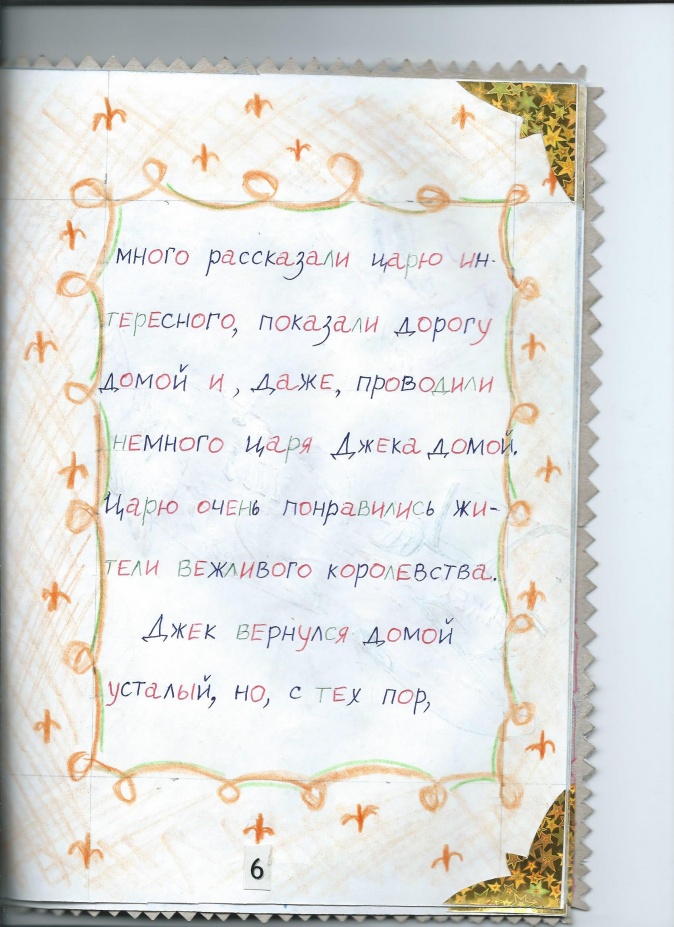 много рассказали царю ин-
тересного, показали дорогу
домой и , даже, проводили
немного царя Джека домой.
Царю очень понравились жи-
тели вежливого королевства.
Джек вернулся домой
усталый, но, с тех пор,
6